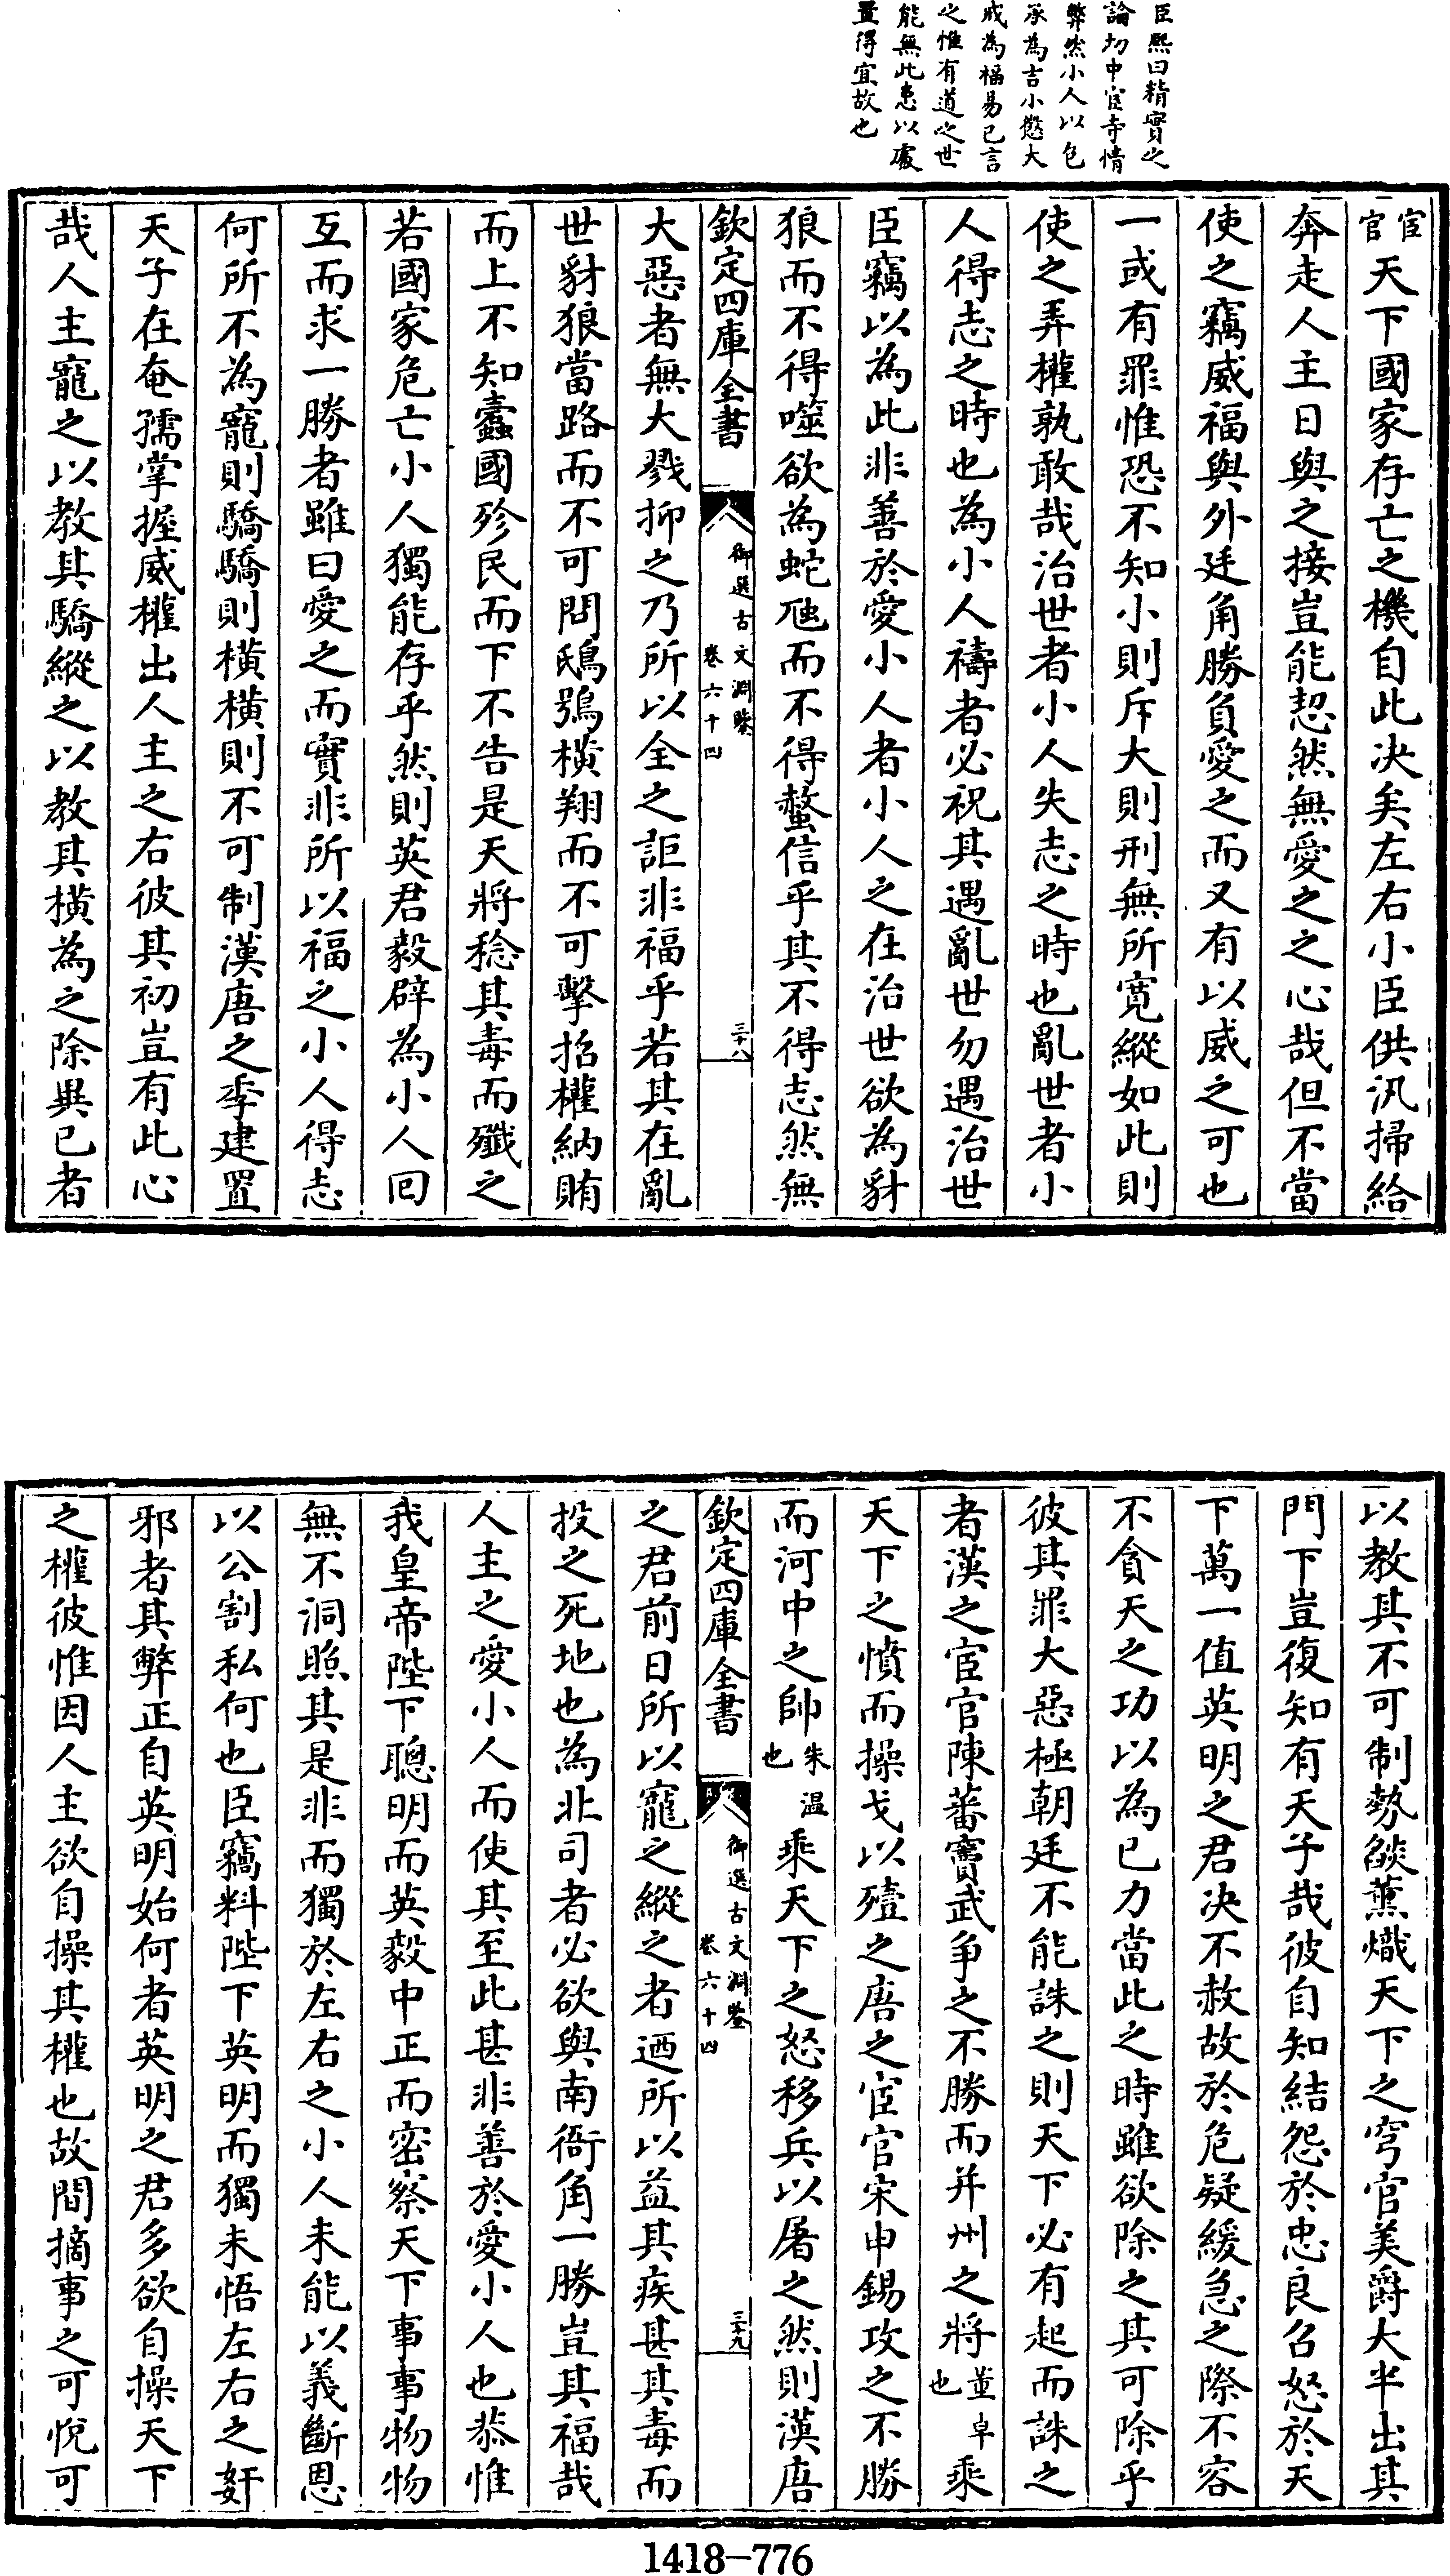 臣熙曰精實之
論切中宦寺情
弊然小人以包
承為吉小懲大
戒為福易已言
之惟有道之世
能無此患以處
置得宜故也
宦官天下國家存亡之機自此决矣左右小臣供汛掃給
奔走人主日與之接豈能恝然無愛之之心哉但不當
使之竊威福與外廷角勝負愛之而又有以威之可也
一或有罪惟恐不知小則斥大則刑無所寛縱如此則
使之弄權孰敢哉治世者小人失志之時也亂世者小
人得志之時也為小人禱者必祝其遇亂世勿遇治世
臣竊以為此非善於愛小人者小人之在治世欲為豺
狼而不得噬欲為蛇虺而不得螫信乎其不得志然無
欽定四庫全書
御選古文淵鑒
卷六十四
三十八
大惡者無大戮抑之乃所以全之詎非福乎若其在亂
世豺狼當路而不可問鴟鴞橫翔而不可擊招權納賄
而上不知蠹國殄民而下不告是天將稔其毒而殲之
若國家危亡小人獨能存乎然則英君毅辟為小人回
互而求一勝者雖曰愛之而實非所以福之小人得志
何所不為寵則驕驕則橫橫則不可制漢唐之季建置
天子在奄孺掌握威權出人主之右彼其初豈有此心
哉人主寵之以教其驕縱之以教其橫為之除異已者
以教其不可制勢燄薰熾天下之穹官美爵大半出其
門下豈復知有天子哉彼自知結怨於忠良召怒於天
下萬一值英明之君决不赦故於危疑緩急之際不容
不貪天之功以為已力當此之時雖欲除之其可除乎
彼其罪大惡極朝廷不能誅之則天下必有起而誅之
者漢之宦官陳蕃竇武争之不勝而并州之將董卓也乘
天下之憤而操戈以殪之唐之宦官宋申錫攻之不勝
而河中之帥朱温也乘天下之怒移兵以屠之然則漢唐
欽定四庫全書
御選古文淵鑒
卷六十四
三十九
之君前日所以寵之縱之者迺所以益其疾甚其毒而
投之死地也為北司者必欲與南衙角一勝豈其福哉
人主之愛小人而使其至此甚非善於愛小人也恭惟
我皇帝陛下聰明而英毅中正而密察天下事事物物
無不洞照其是非而獨於左右之小人未能以義斷恩
以公割私何也臣竊料陛下英明而獨未悟左右之奸
邪者其弊正自英明始何者英明之君多欲自操天下
之權彼惟因人主欲自操其權也故間摘事之可悅可
1418-776